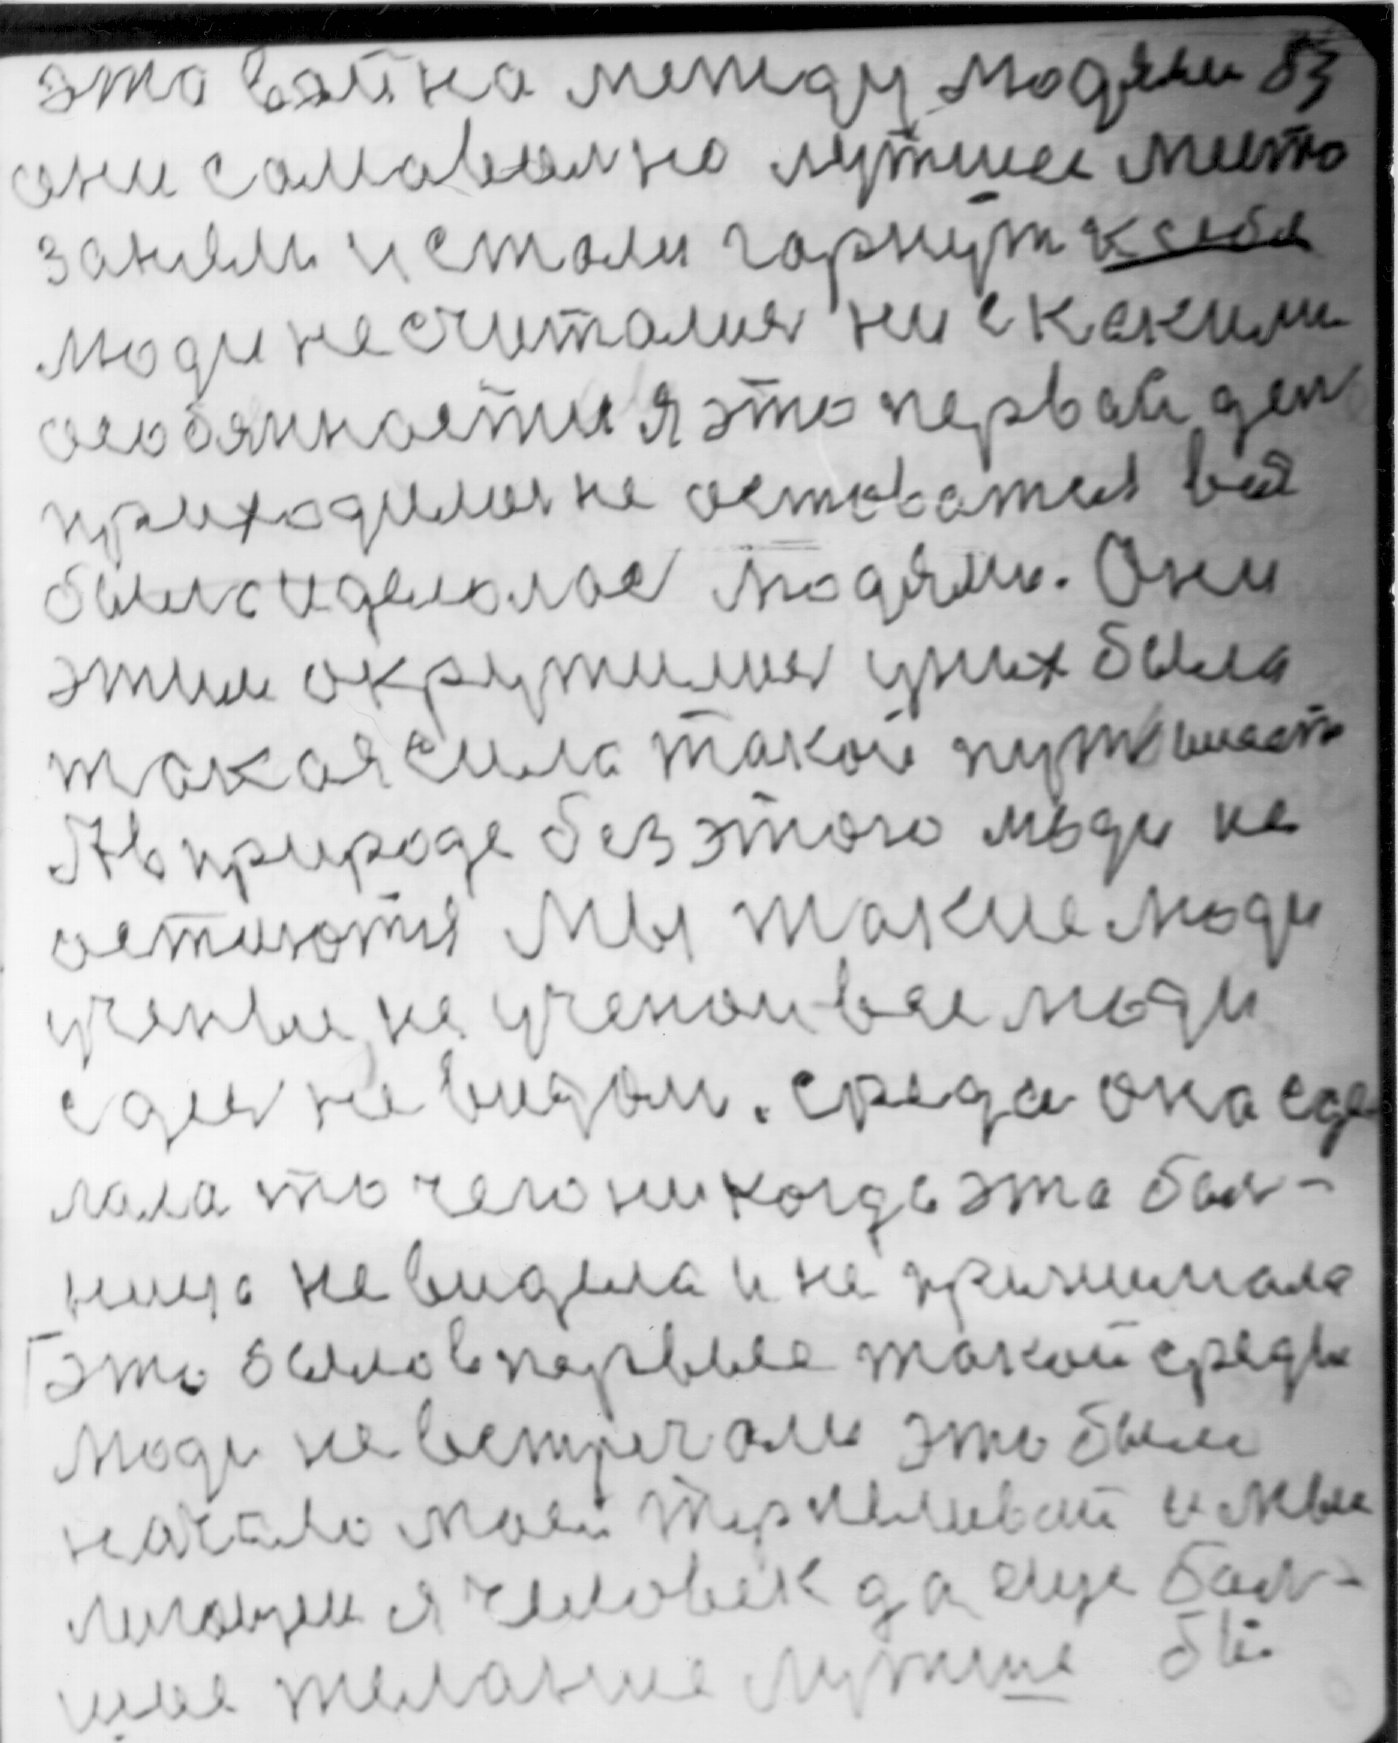 это война между людями
они самавольно лутшее место
заняли и стали гарнут к себя
люди не считалися ни с какими
особянностия это первой ден
приходился не остоватся вся
было и делолос людями. Они
этим окружилися у них была
такая сила такой
А в природе без этого люди не
остаются Мы такие люди
ученые не ученои все люди
сдес не видом. среда она сде-
лала то чего никогда эта бол-
ница не видела и не принимала
это было впервые такой среды
люди не встречали это было
начало моей терпеливой и мы
я человек да еще бол-
шое желание лутше бы